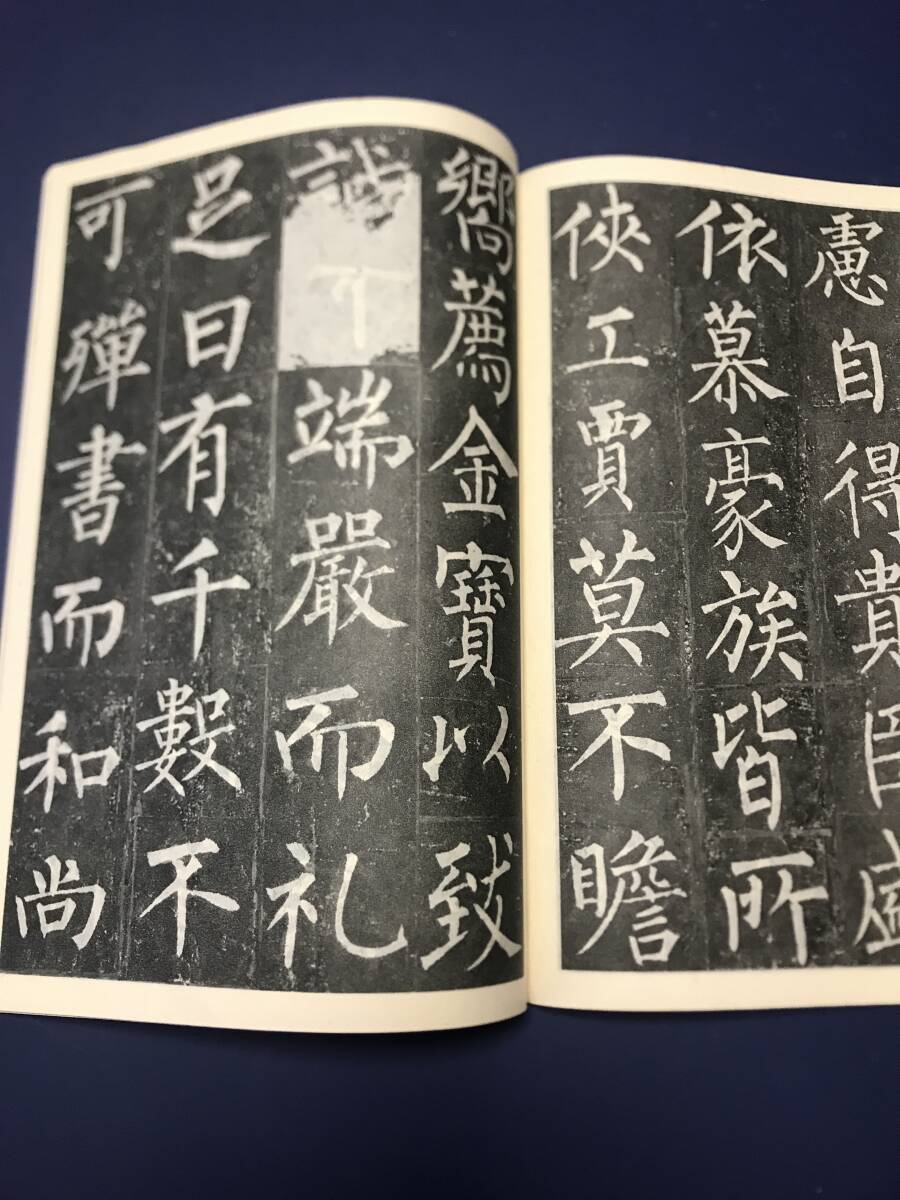 慮自得貴臣盛
依慕豪族皆所
俠工賈莫不瞻
嚮薦金寶以致
誠 端嚴而礼
足日有千數不
可殫書而和尚